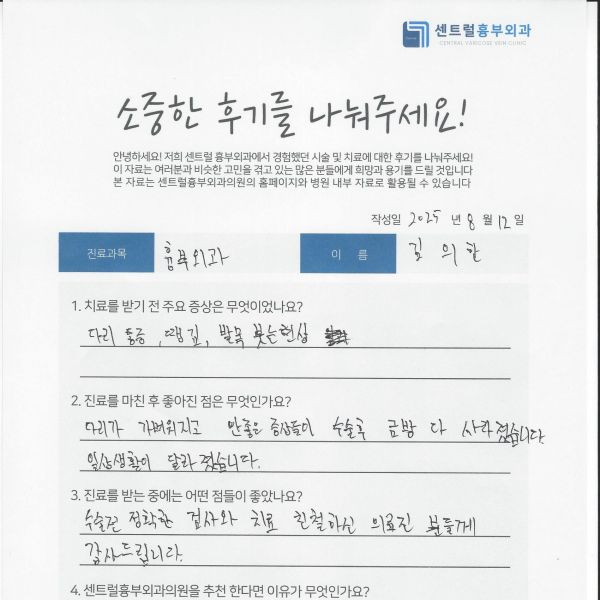 센트럴흉부외과
CENTRAL VARICOSE VEIN CLINIC
소중한 후기를 나눠주세요!
안녕하세요! 저희 센트럴 흉부외과에서 경험했던 시술 및 치료에 대한 후기를 나눠주세요!
이 자료는 여러분과 비슷한 고민을 겪고 있는 많은 분들에게 희망과 용기를 드릴 것입니다
본 자료는 센트럴흉부외과의원의 홈페이지와 병원 내부 자료로 활용될 수 있습니다
작성일 2025 년 8 월 12 일
진료과목 흉부외과 이 름 김의한
1. 치료를 받기 전 주요 증상은 무엇이었나요?
다리 통증, 땡김, 발목 붓는현상
2. 진료를 마친 후 좋아진 점은 무엇인가요?
다리가 가벼워지고 안좋은 증상들이 수술후 금방 다 사라졌습니다
일상생활이 달라졌습니다.
3. 진료를 받는 중에는 어떤 점들이 좋았나요?
수술전 정확한 검사와 치료 친절하신 의료진 분들게
감사드립니다.
4. 센트럴흉부외과의원을 추천 한다면 이유가 무엇인가요?